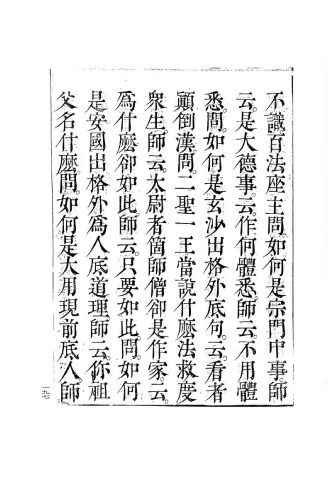 不識百法座主問。如何是宗門中事師
云。是大德事。云。作何體悉。師云。不用體
悉。問。如何是玄沙出格外底句。云。看者
顚倒漢。問。二聖一王當說什麼法救度
衆生。師云。太尉者箇師僧卻是作家。云。
爲什麼卻如此。師云。只要如此問。如何
是安國出格外爲人底道理。師云。你祖
父名什麼。問。如何是大用現前底人。師
一九七